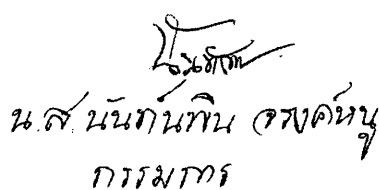 น.ส. นันท์นภิน จรงค์หนู
กรรมการ